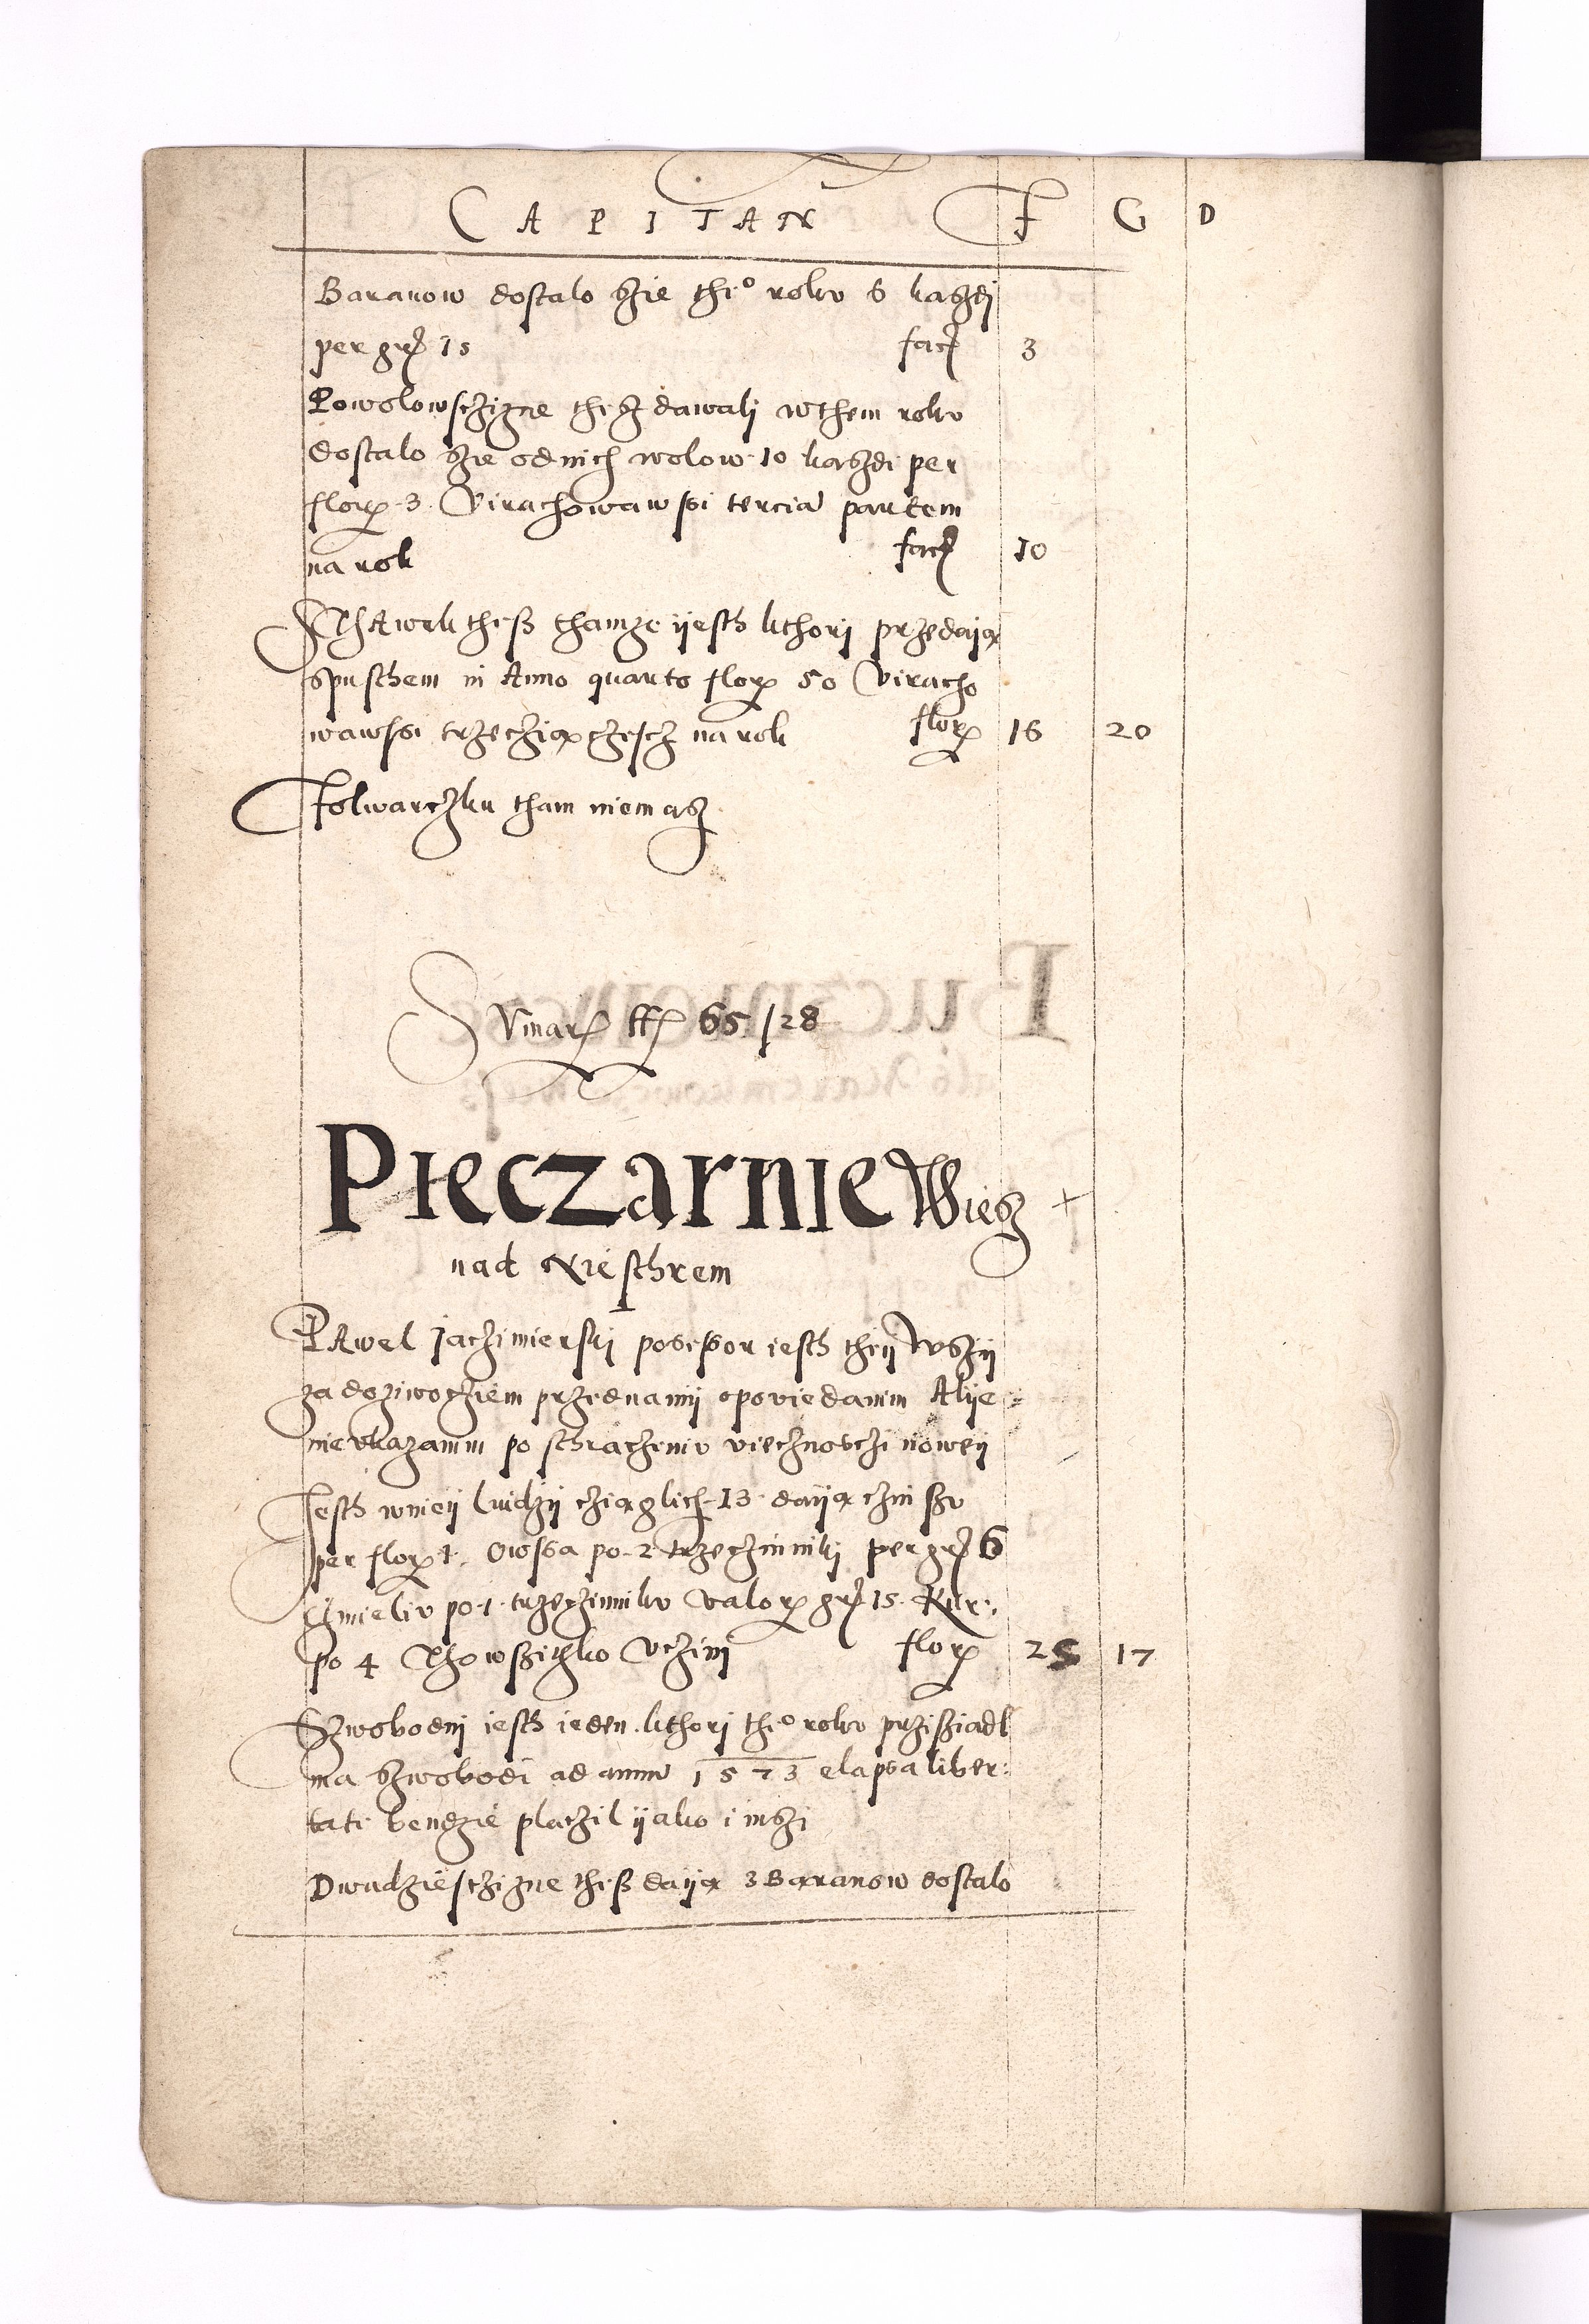 CAPITAN F G D
Baranow dostalo szie the° roku 6 kaszdj
per gr 15 facj 3
Powolowsczizne thesz dawalj wthem roku
dostalo szie od nich wolow 10 kaszdi per
flor 3 Virachowawssi tercia partem
na rok facj 10
SThAwek thesz thamze ijesth kthorj przedaija
spusthem in Anno quarto flor 50 Viracho
wawssi trzeczią częscz na rok flor 16 20
Folwarczku tham niemasz
SVmar ff 65 / 28
Pieczarnie Wiesz
nad Niesthrem
PAwel Jaczimierski possessor iesth theij wszij
za doziwocziem przednamij opoviedanim Alije
nievkazanim po sthraczeniv viecznosczi nowey
Jesth wnieij ludzij cziąglich 13 daiją czinszv
per flor 1. Owssa po 2 trzeczinnikj per gr 6
Chmieliv po 1 trzeczinnikv valor gr 15. Kur:
po 4 Tho wszithko Vczini flor 25 17
Szwobodnj iesth ieden kthorj the° rokv przisziadl
na szwobodi ad annum 1573 elapsa liber:
tate bendzie placzil ijako i inszi
Dwudziesczizne thesz daiją 3 Baranow dostalo